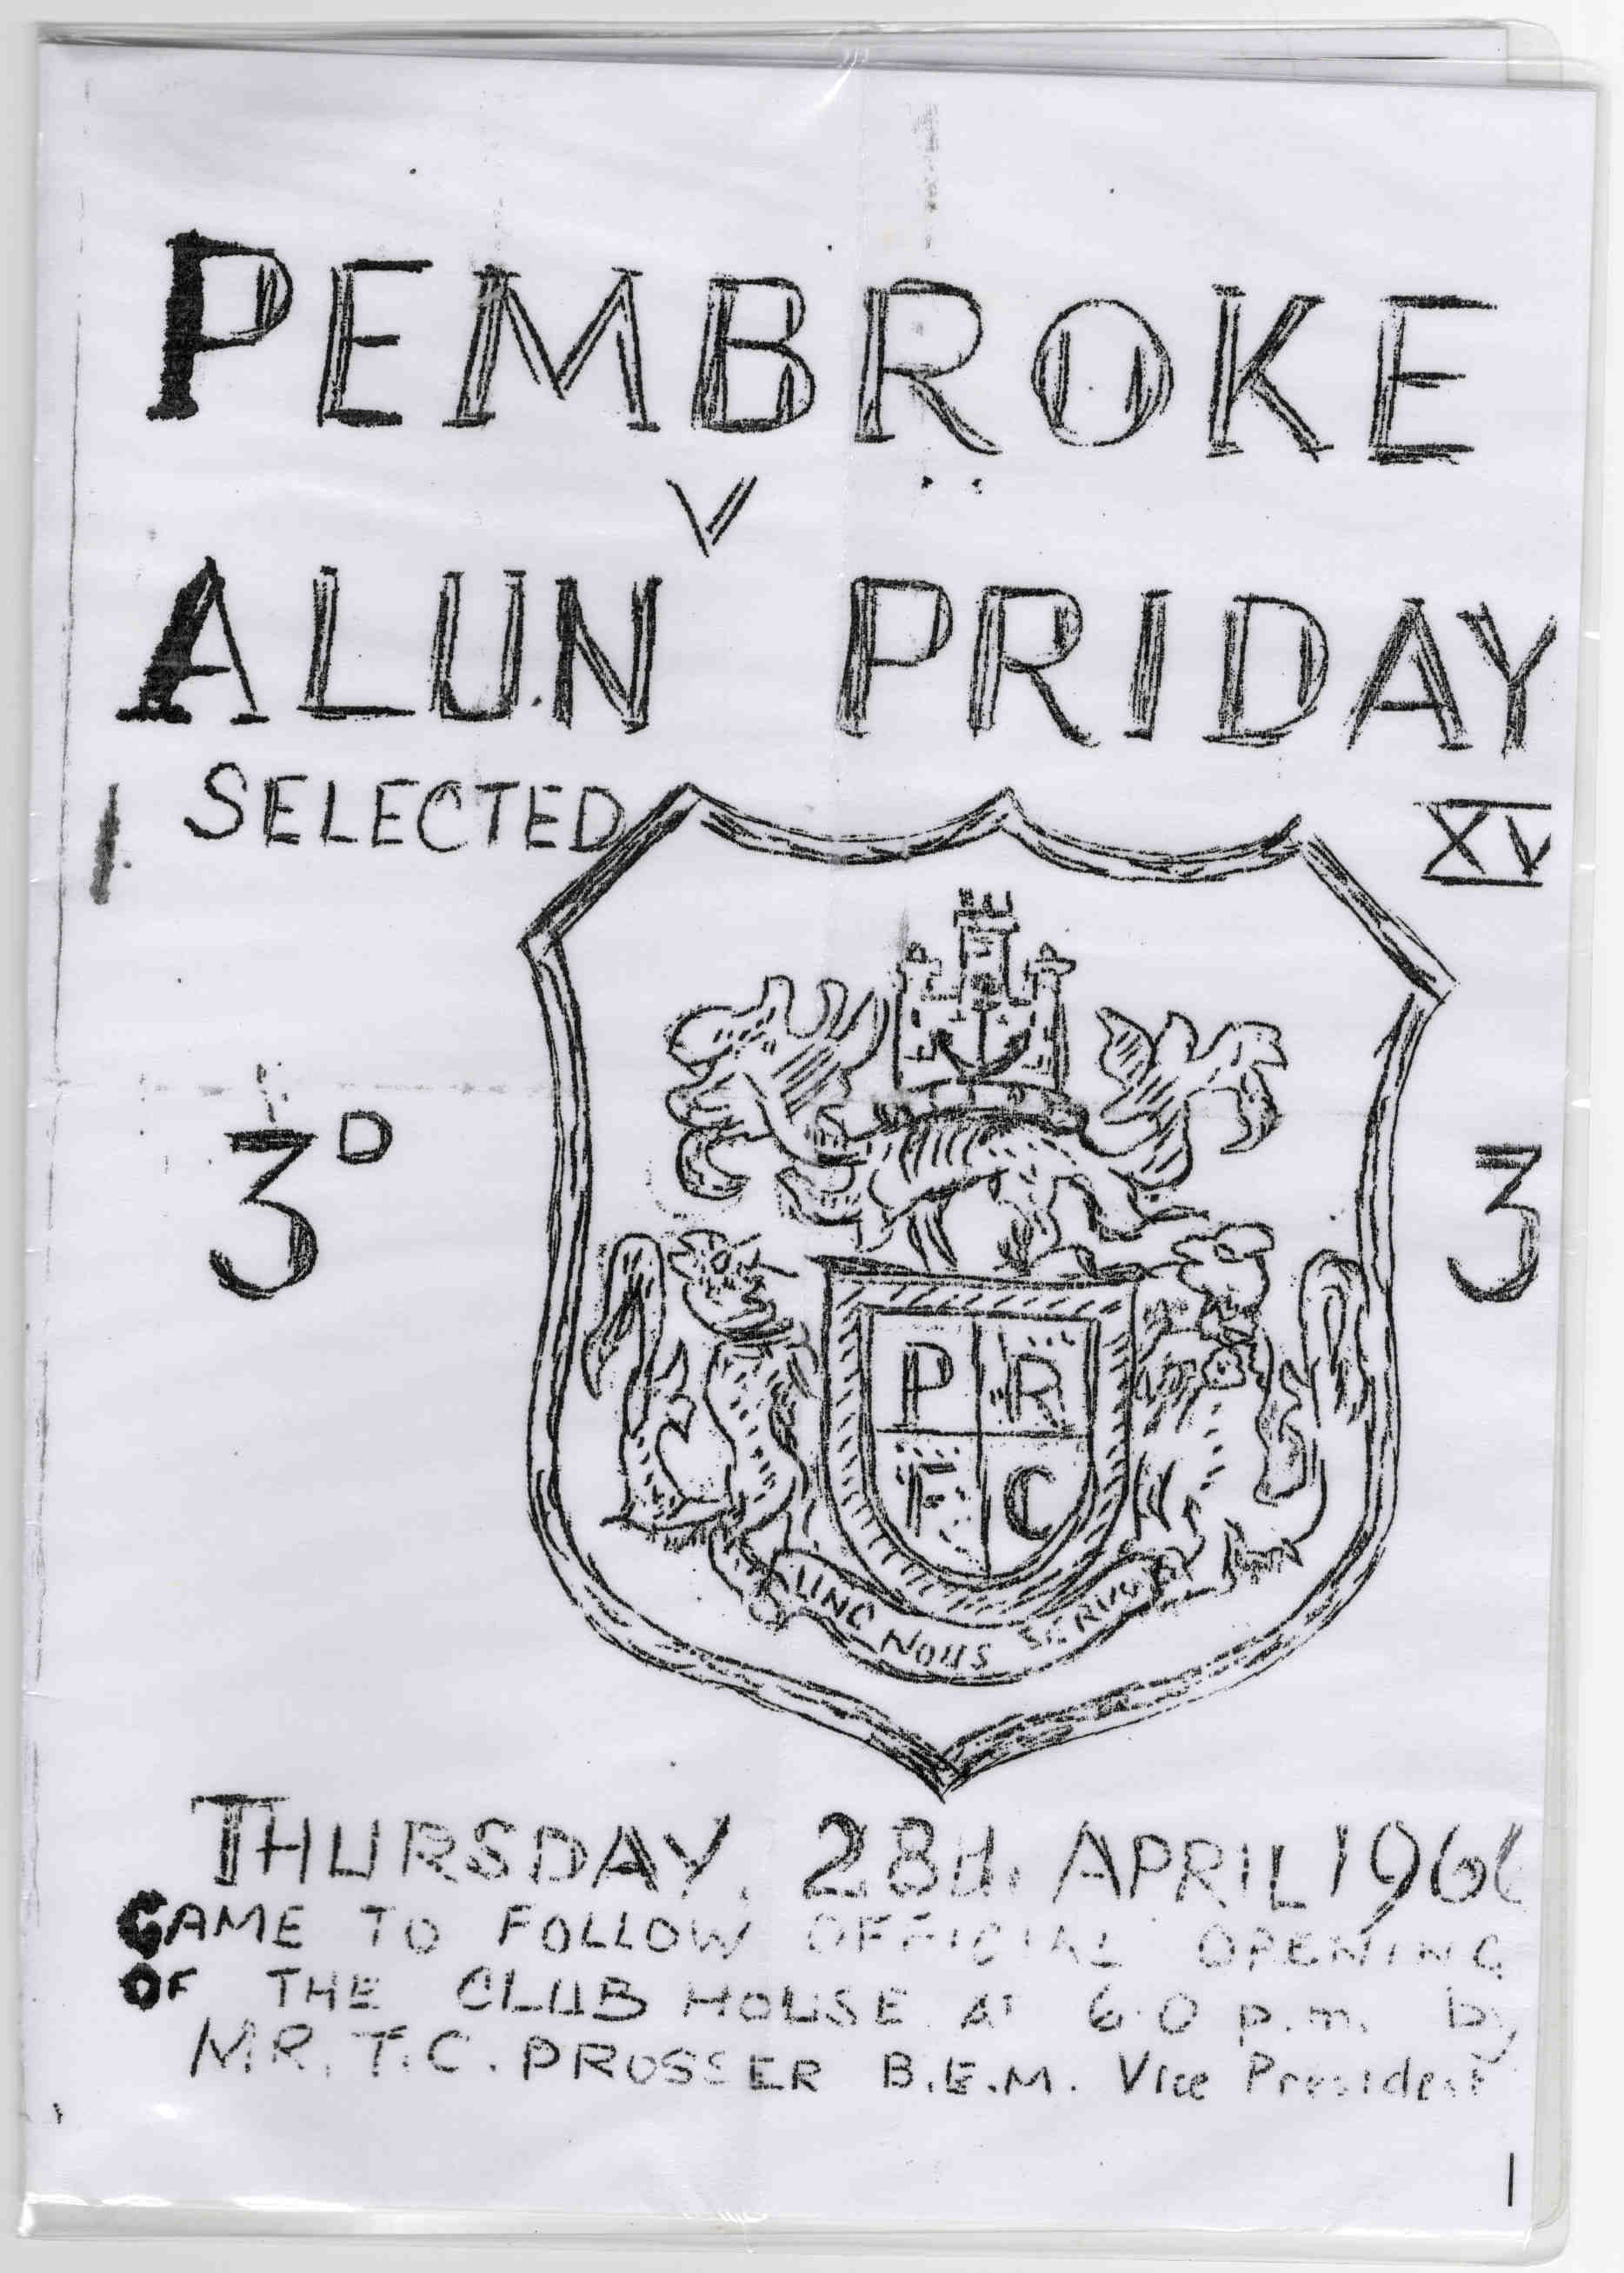 PEMBROKE
V
ALUN PRIDAY
SELECTED XV
3D 3
P R
F C
UNC NOUS SERVONS
THURSDAY, 28th APRIL 1966
GAME TO FOLLOW OFFICIAL OPENING
OF THE CLUB HOUSE AT 6.0 p.m. by
MR. T.C. PROSSER B.E.M. Vice President
1